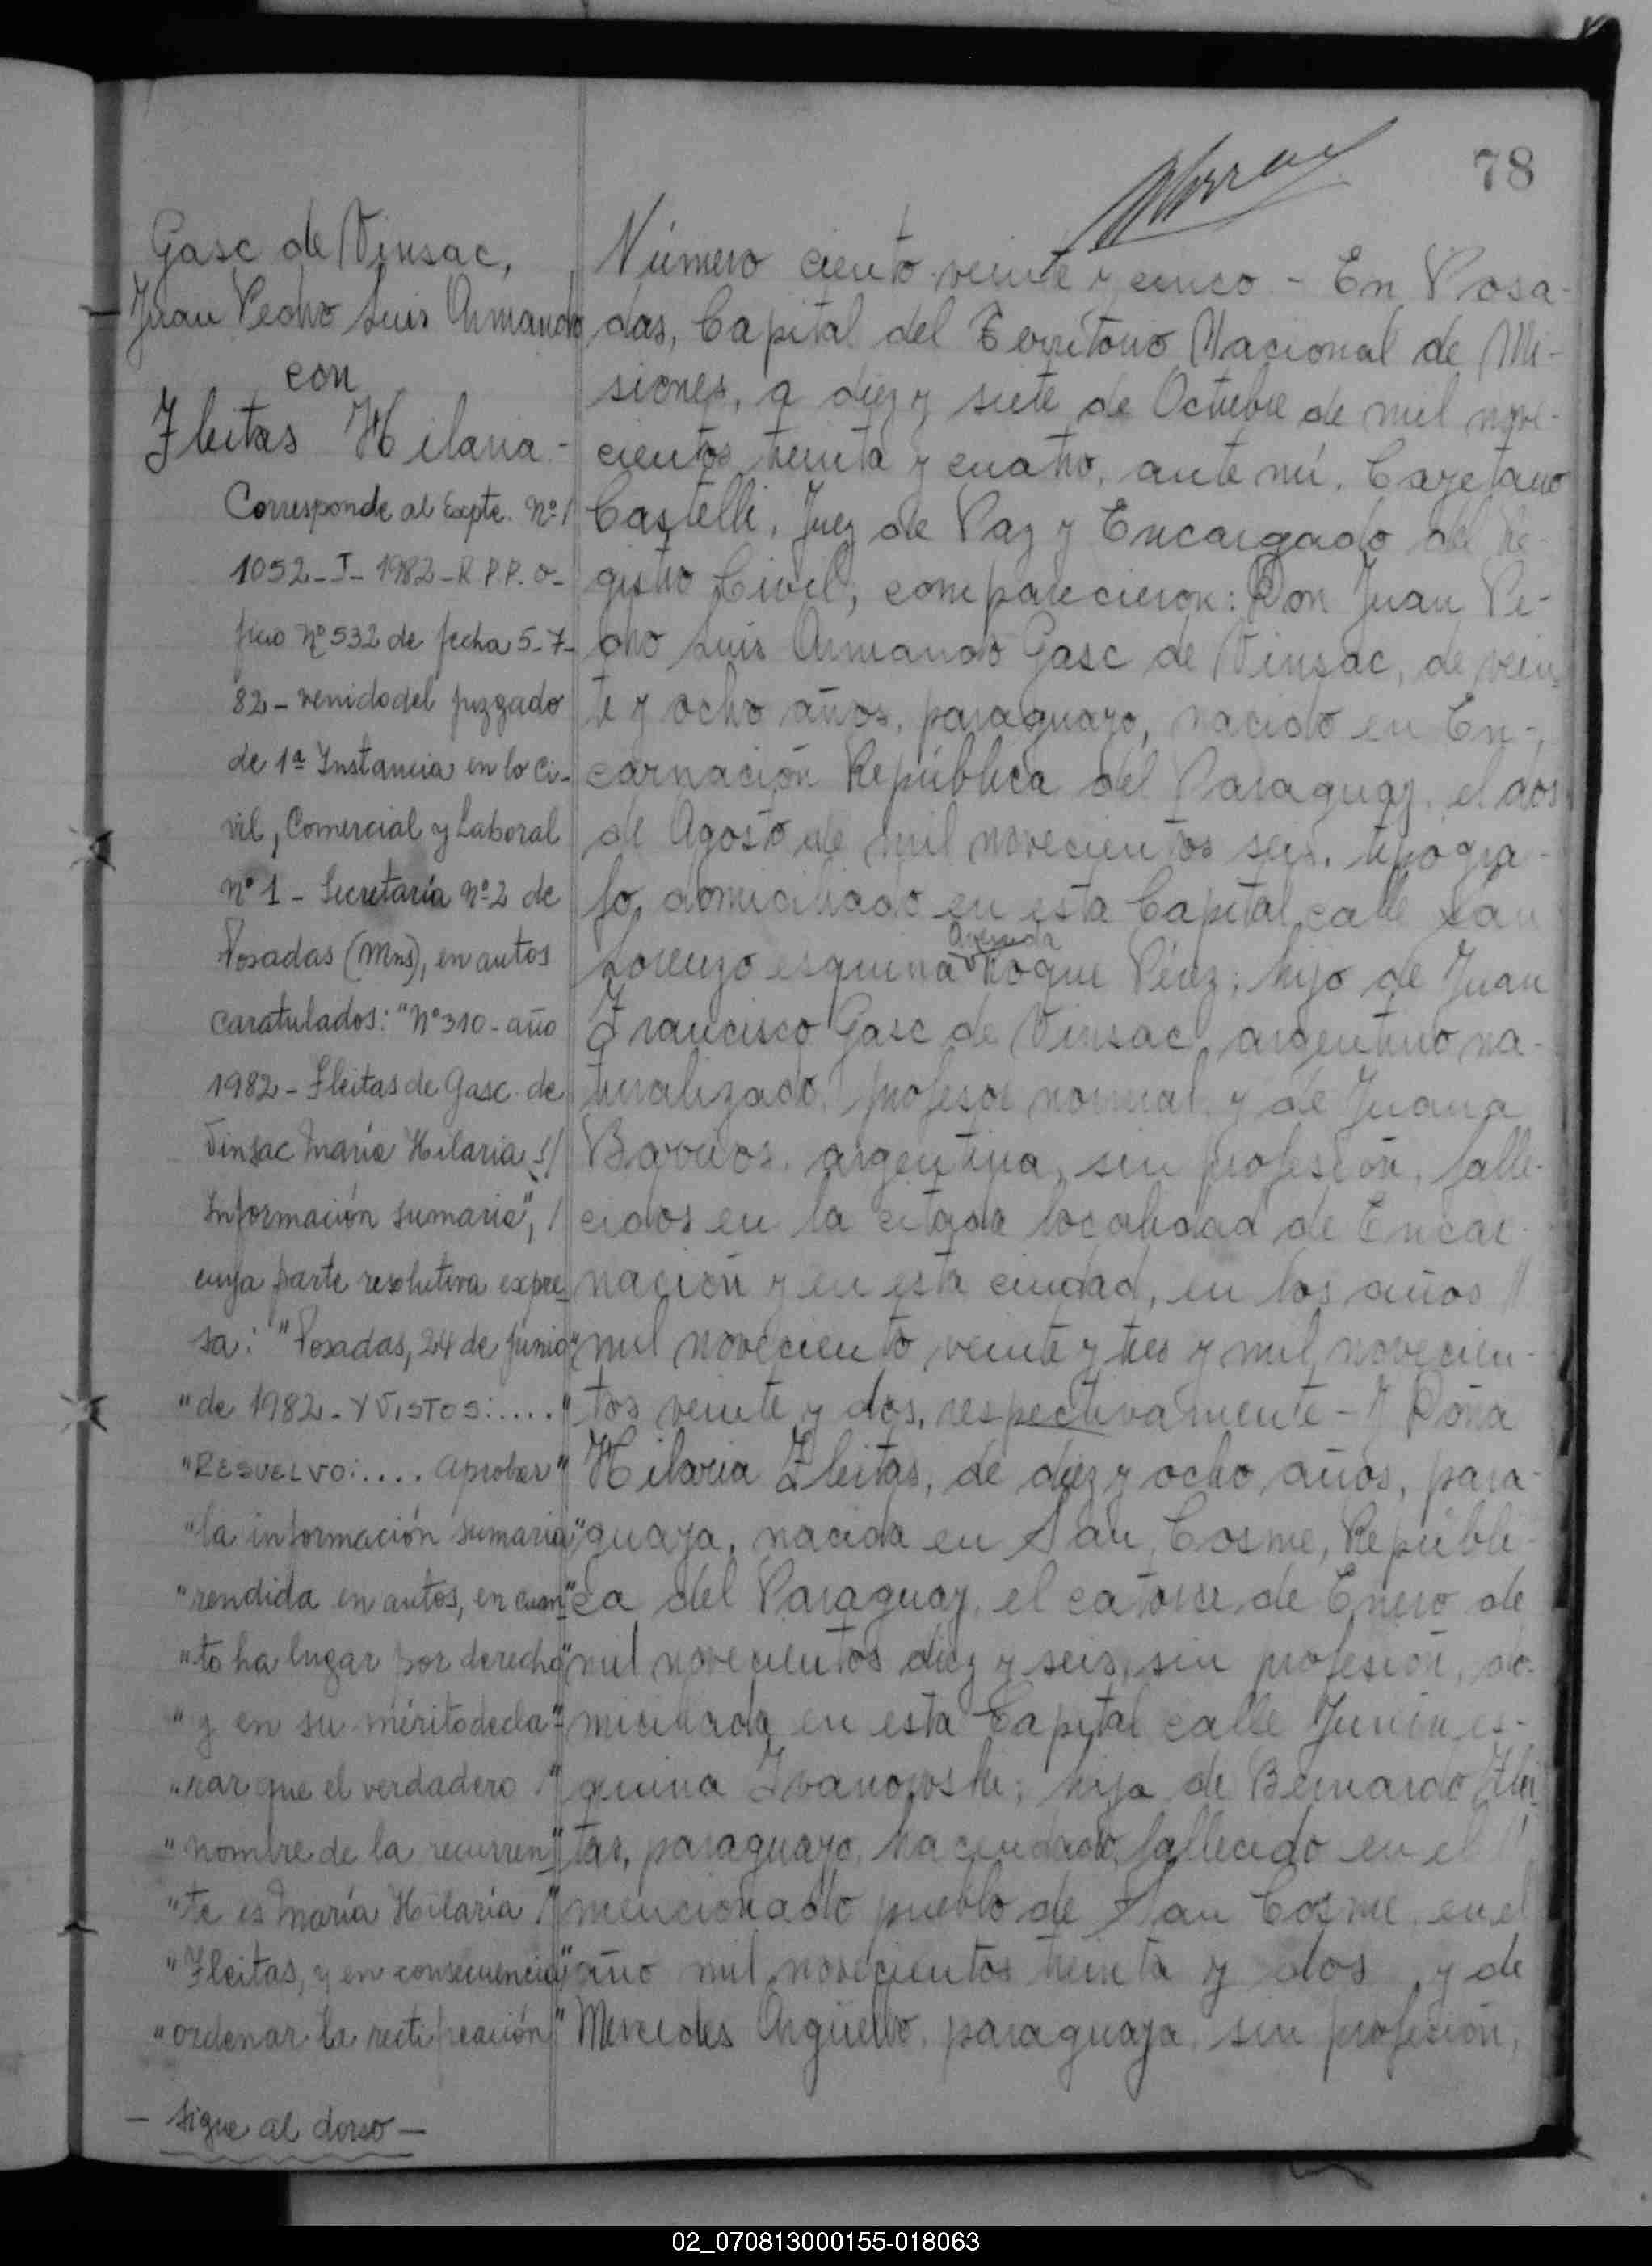 78
Gasc de Vinsac,
Juan Pedro Luis Armando
con
Fleitas Hilaria -
Corresponde al Expte. Nº /
1052 - I - 1982 - R P.P. O-
ficio Nº 532 de fecha 5-7-
82 - venido del juzgado
de 1ª Instancia en lo Ci-
vil, Comercial y Laboral
nº 1 - Secretaría nº 2 de
Posadas (Mns), en autos
caratulados: "Nº 310 - año
1982 - Fleitas de Gasc de
Vinsac María Hilaria s/
Información sumaria", /
cuya parte resolutiva expre-
sa: "Posadas, 24 de junio "
"de 1982 - Y VISTOS: .... "
"RESUELVO: .... aprobar "
"la información sumaria "
"rendida en autos, en cuan- "
"to ha lugar por derecho "
"y en su mérito decla- "
"rar que el verdadero / "
"nombre de la recurren- "
"te es María Hilaria / "
"Fleitas, y en consecuencia "
"ordenar la rectificación "
- Sigue al dorso -
Número ciento veinte y cinco - En Posa-
das, Capital del Territorio Nacional de Mi-
siones, a diez y siete de Octubre de mil nove-
cientos treinta y cuatro, ante mí, Cayetano
Castelli, Juez de Paz y Encargado del Re-
gistro Civil, comparecieron: Don Juan Pe-
dro Luis Armando Gasc de Vinsac, de vein-
te y ocho años, paraguayo, nacido en En-
carnación República del Paraguay, el dos
de Agosto de mil novecientos seis, tipogra-
fo, domiciliado en esta Capital, calle San
Avenida
Lorenzo esquina Roque Pérez; hijo de Juan
Francisco Gasc de Vinsac, argentino na-
turalizado, profesor normal y de Juana
Barrios, argentina, sin profesión, falle-
cidos en la citada localidad de Encar-
nación y en esta ciudad, en los años //
mil noveciento veinte y tres y mil novecien-
tos veinte y dos, respectivamente - Y Doña
Hilaria Fleitas, de diez y ocho años, para-
guaya, nacida en San Cosme, Repúbli-
ca del Paraguay, el catorce de Enero de
mil novecientos diez y seis, sin profesión, do-
miciliada en esta Capital calle Junín es-
quina Ivanowski; hija de Bernardo Flei-
tas, paraguayo, hacendado, fallecido en el
mencionado pueblo de San Cosme, en el
año mil novecientos treinta y dos, y de
Mercedes Argüello, paraguaya, sin profesión,
02_070813000155-018063